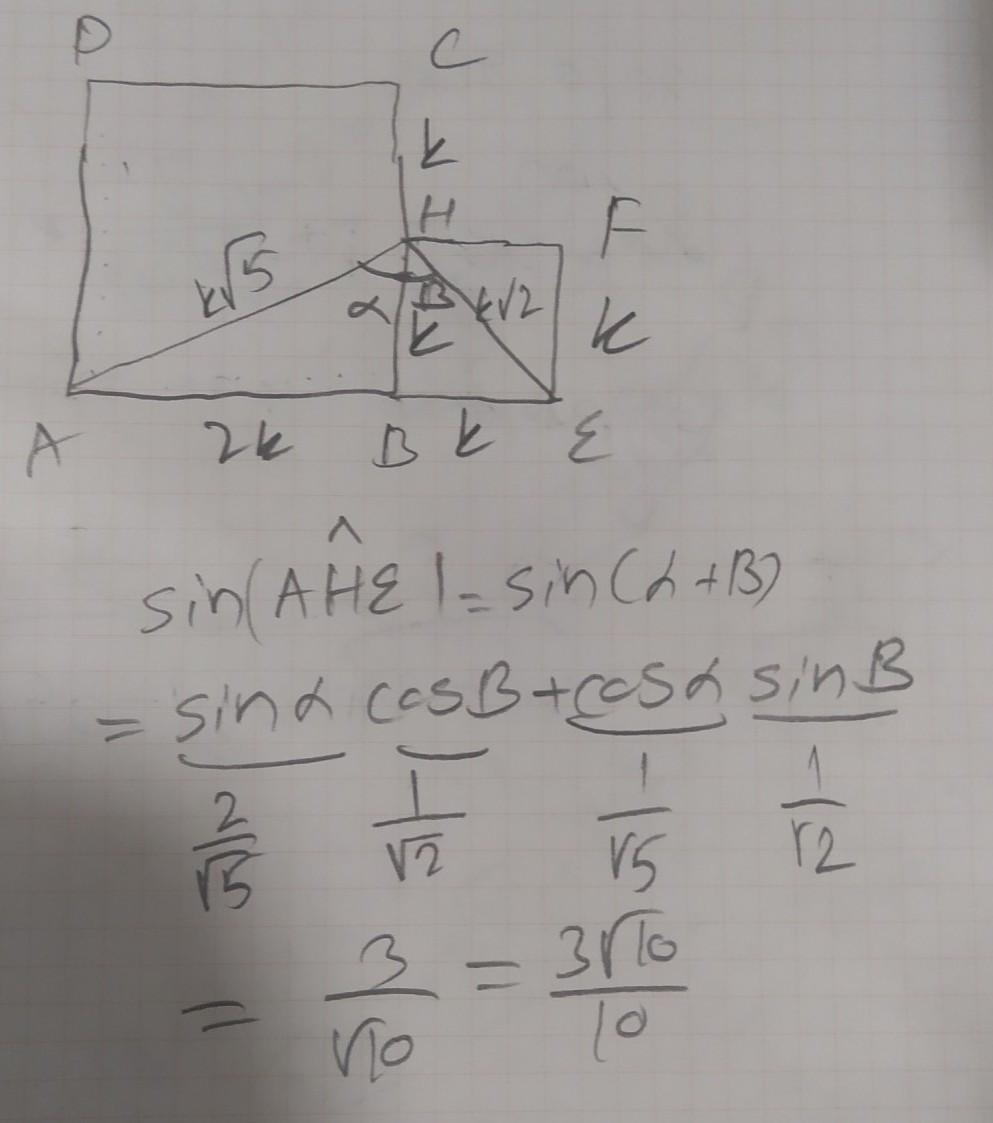 D C
k
H F
k√5 α B k√2
k k
A 2k B k E
sin(AĤE)=sin(α+B)
= sinα cosB+cosα sinB
2/√5 1/√2 1/√5 1/√2
= 3/√10 = 3√10/10